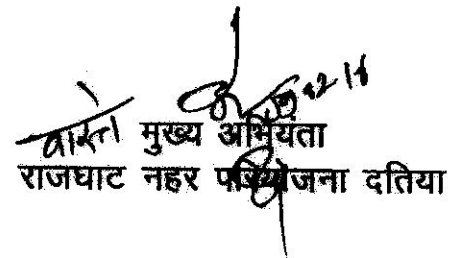 वास्ते मुख्य अभियंता
राजघाट नहर परियोजना दतिया